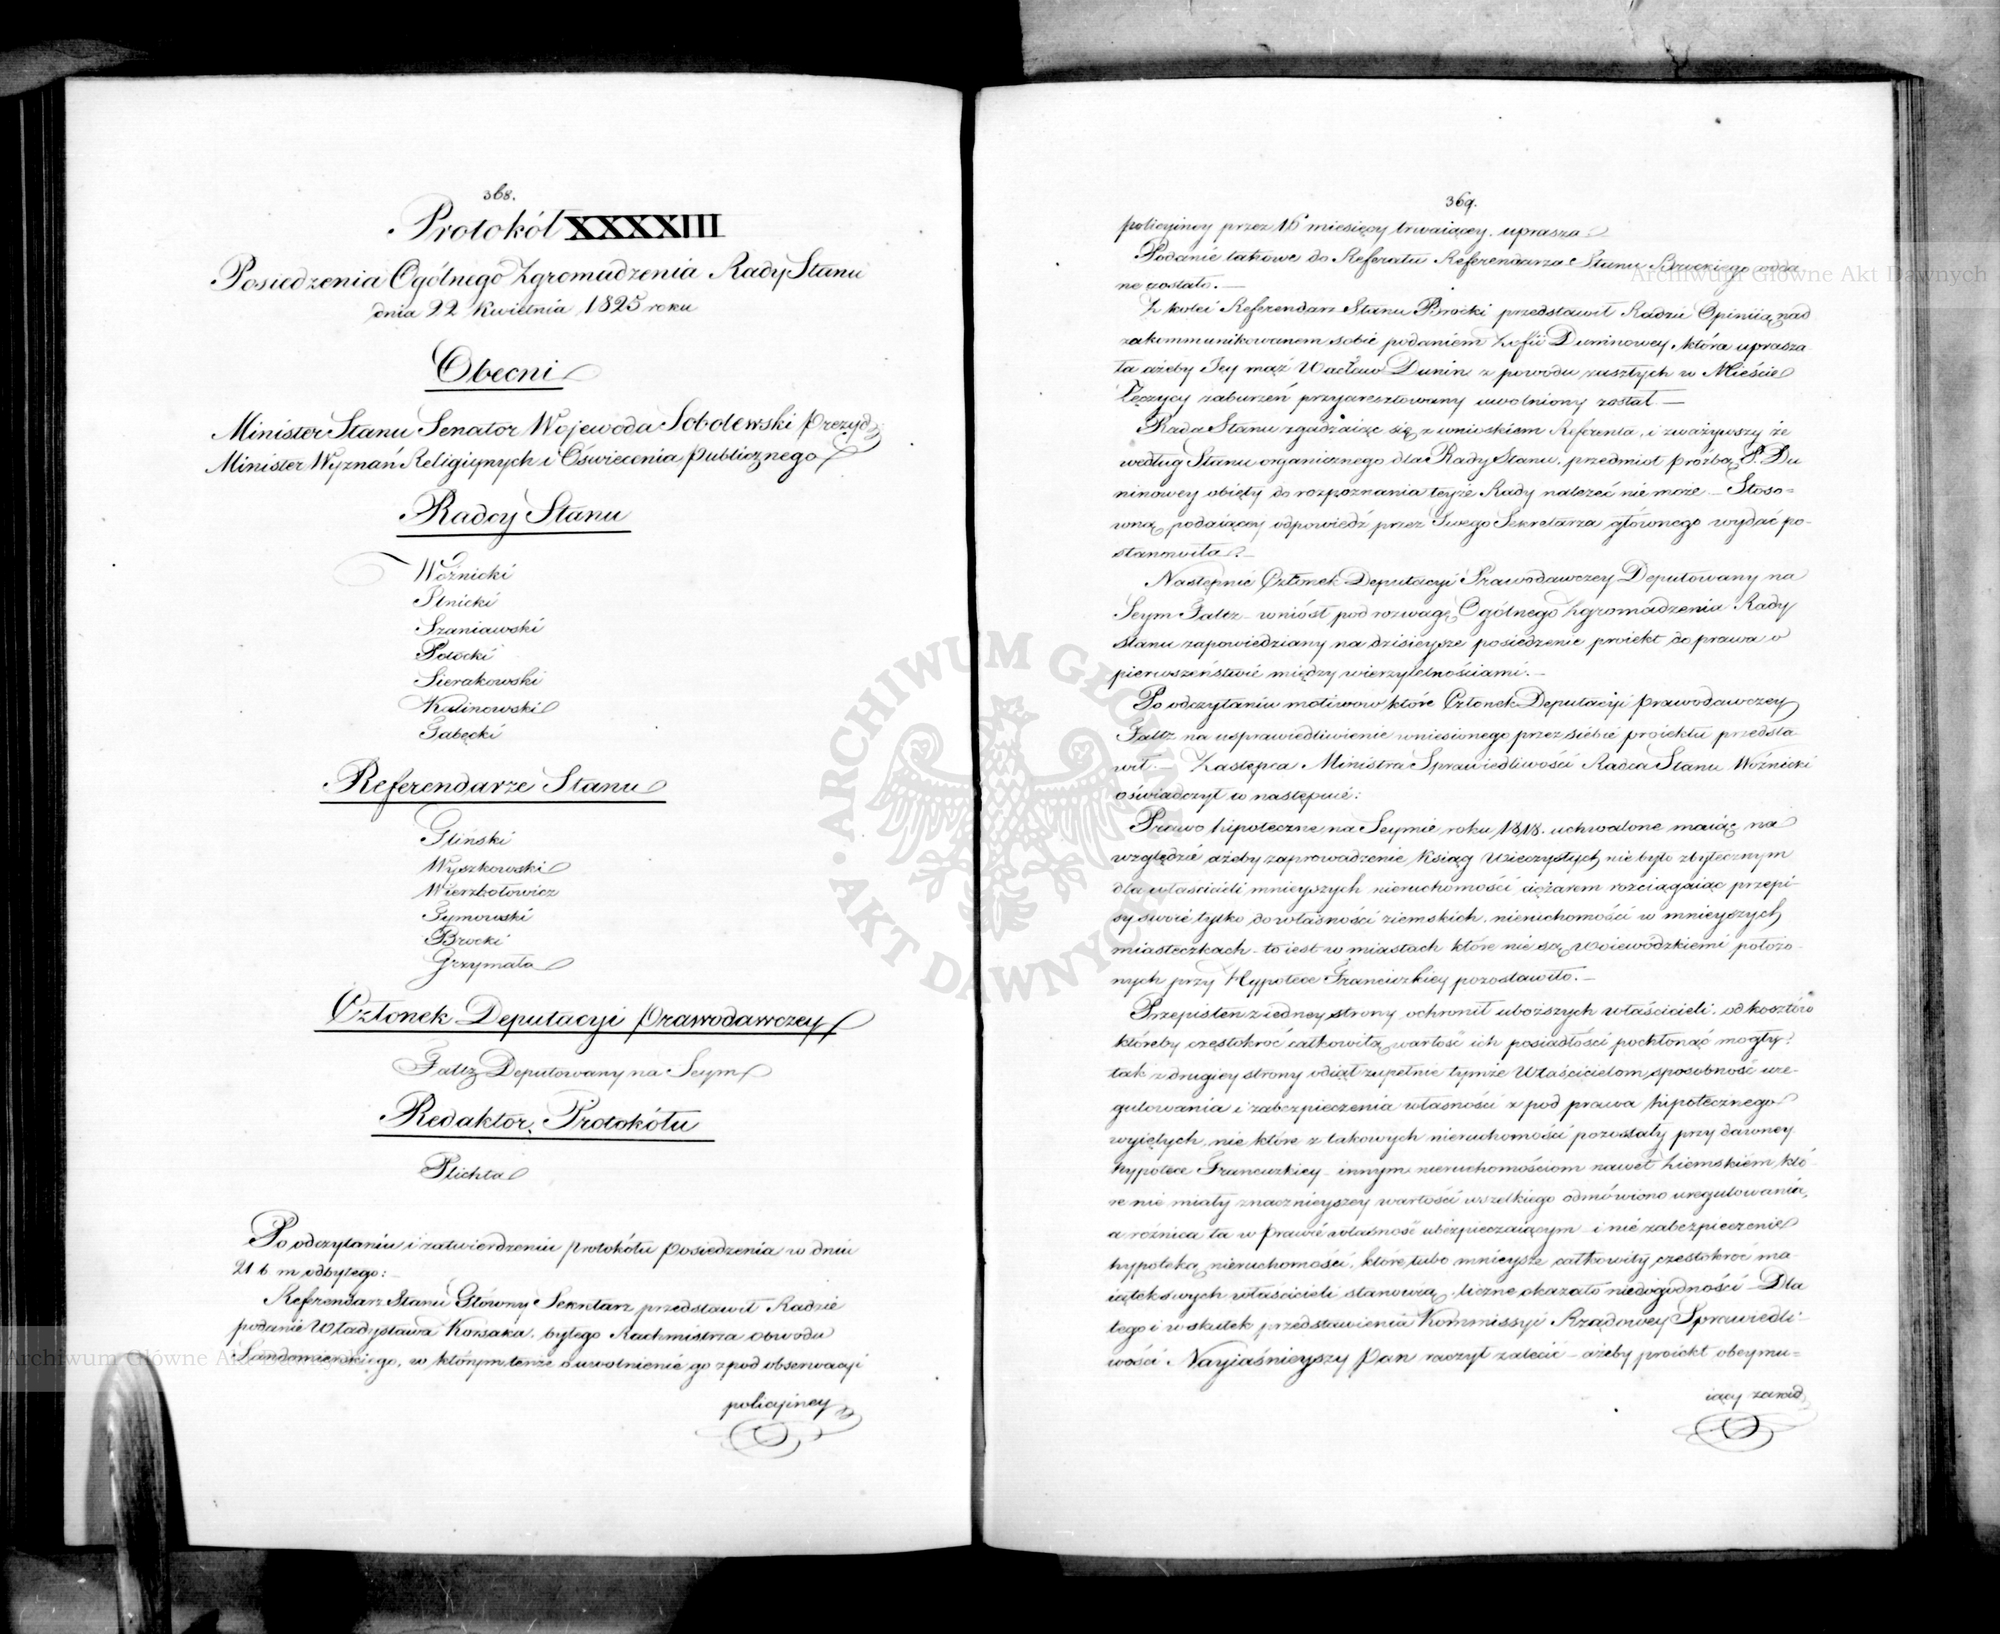 368.
Protokół XXXXIII
Posiedzenia Ogólnego Zgromadzenia Rady Stanu
dnia 22 Kwietnia 1825 roku
Obecni
Minister Stanu Senator Wojewoda Sobolewski Prezyd
Minister Wyznań Religijnych i Oświecenia publicznego
Radcy Stanu
Woźnicki
Szaniawski
Potocki
Sierakowski
Kalinowski
Referendarze Stanu
Gliński
Wyszkowski
Wierzbołowicz
Tymowski
Brocki
Grzymała
Członek Deputacyi prawodawczey
Faltz Deputowany na Seym
Redaktor Protokółu
Plichta
Po odczytaniu i zatwierdzeniu protokółu posiedzenia w dniu
21 b. m odbytego:
Referendarz Stanu Główny Sekretarz przedstawił Radzie
podanie Władysława Korsaka, byłego Rachmistrza obwodu
Sandomierskiego, w którym tenże o uwolnienie go z pod obserwacyi
policyiney
369.
policyiney przez 16 miesięcy trwaiącey, uprasza.
Podanie takowe do Referatu Referendarza Stanu Brockiego odda
ne zostało.—
Z kolei Referendarz Stanu Brocki przedstawił Radzie Opiniią nad
zakommunikowanem sobie podaniem Zofii Duninowey, która uprasza
ła ażeby Jey mąż Wacław Dunin z powodu zaszłych w Mieście
Łęczycy zaburzeń przyaresztowany uwolniony został.—
Rada Stanu zgadzaiąc się z wnioskiem Referenta, i zważywszy że
według Statu organicznego dla Rady Stanu, przedmiot prożbą P. Du
ninowey obięty do rozpoznania teyże Rady należeć nie może — Stoso=
wną podaiącey odpowiedź przez Swego Sekretarza głównego wydać po-
stanowiła.—
Następnie Członek Deputacyi Prawodawczey Deputowany na
Seym Faltz — wniósł pod rozwagę Ogólnego Zgromadzenia Rady
Stanu zapowiedziany na dzisieysze posiedzenie proiekt do prawa o
pierwszeństwie między wierzytelnościami.—
Po odczytaniu motiwow które Członek Deputacyi prawodawczey
Faltz na usprawiedliwienie wniesionego przez siebie proiektu przedsta-
wił.— Zastępca Ministra Sprawiedliwości Radca Stanu Woźnicki
oświadczył w następnie:
Prawo hipoteczne na Seymie roku 1818. uchwalone maiąc na
względzie ażeby zaprowadzenie Ksiąg Wieczystych nie było zbytecznym
dla właścicieli mnieyszych nieruchomości ciężarem rozciągaiąc przepi-
sy swoie tylko do własności ziemskich, nieruchomości w mnieyszych
miasteczkach — to iest w miastach które nie są Woiewódzkiemi położo-
nych przy Hypotece Francuzkiey pozostawiło.—
Przepis ten z iedney strony ochronił uboższych właścicieli, od kosztów
któreby częstokroć całkowitą wartość ich posiadłości pochłonąć mogły
tak z drugiey strony odiął zupełnie tymże Właścicielom sposobność ure-
gulowania i zabezpieczenia własności z pod prawa hipotecznego
wyiętych, nie które z takowych nieruchomości pozostały przy dawney
hypotece Francuzkiey — innym nieruchomościom nawet Ziemskiem, któ-
re nie miały znacznieyszey wartości wszelkiego odmówiono uregulowania,
a różnica ta w prawie własność ubezpieczaiącym — i nie zabezpieczenie
hypoteką nieruchomości, które lubo mnieysze całkowity częstokroć ma-
iątek owych właścicieli stanowią, liczne okazało niedogodności — Dla
tego i w skutek przedstawienia Kommissyi Rządowey Sprawiedli-
wości Nayiaśnieyszy Pan raczył zalecić — ażeby proiekt obeymu=
iący zasad
Archiwum Główne Akt Dawnych
ARCHIWUM GŁÓWNE AKT DAWNYCH